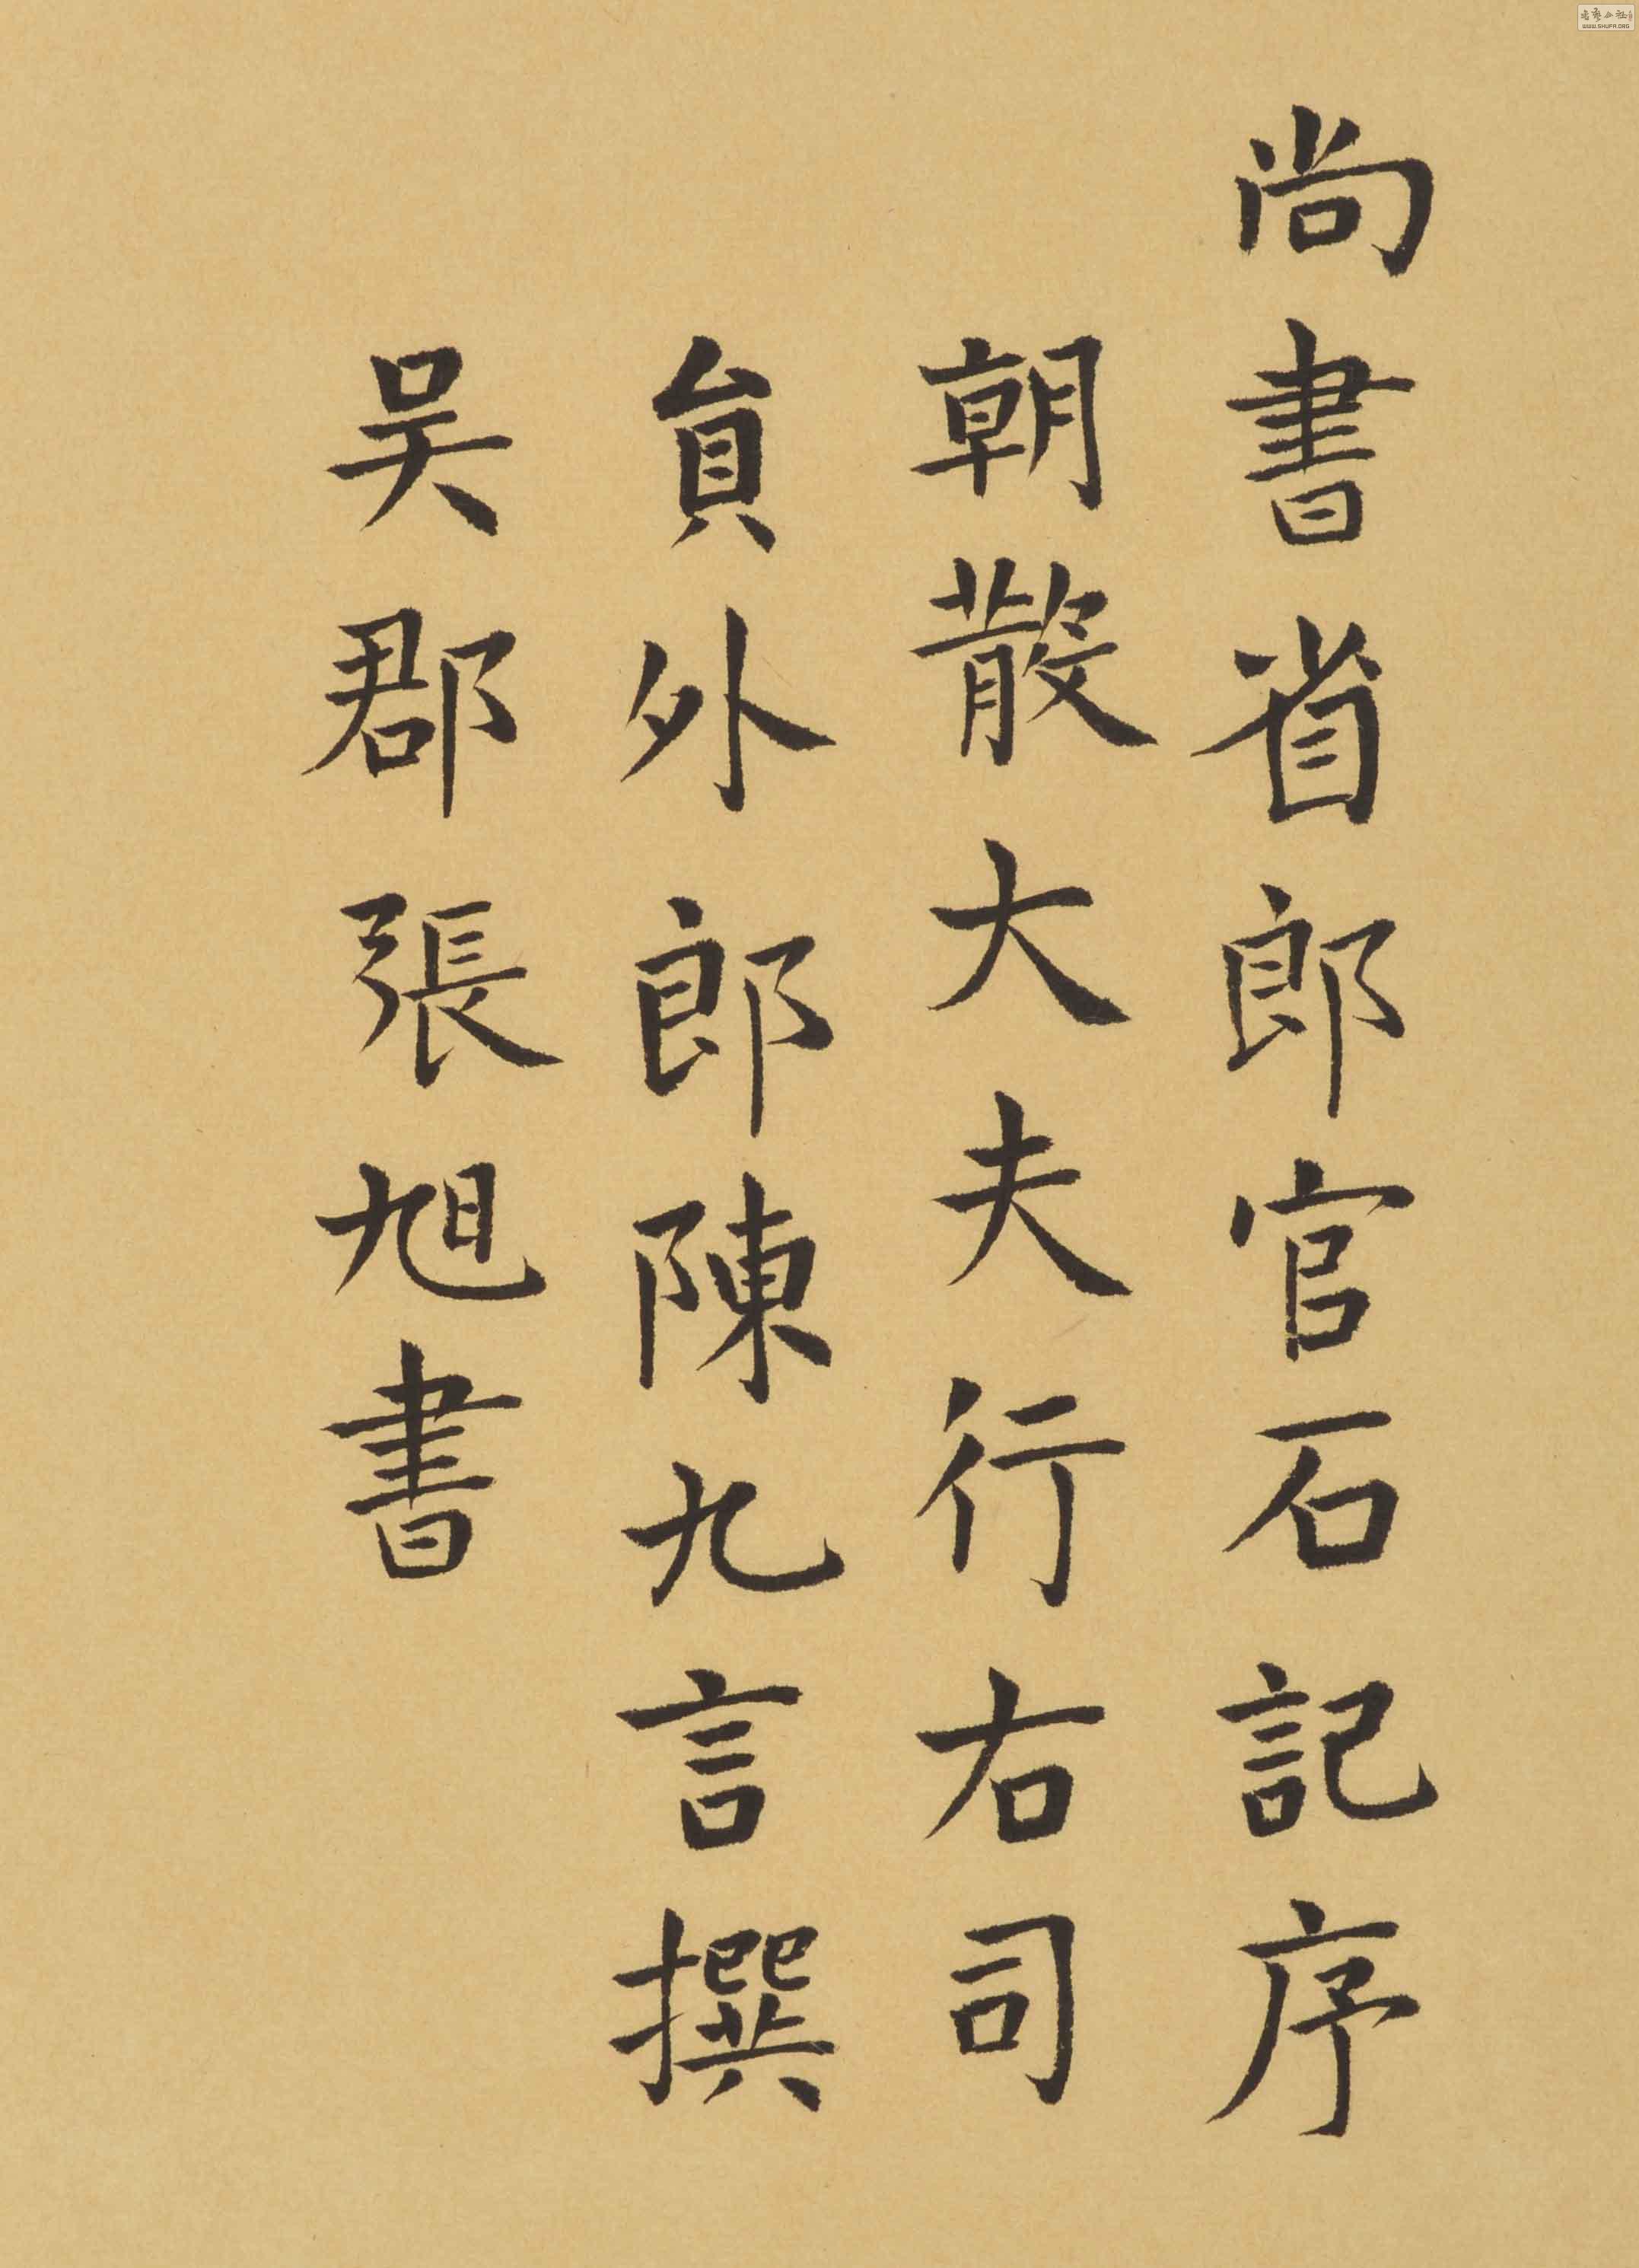 尚書省郎官石記序
朝散大夫行右司
員外郎陳九言撰
吴郡張旭書
WWW.SHUFA.ORG